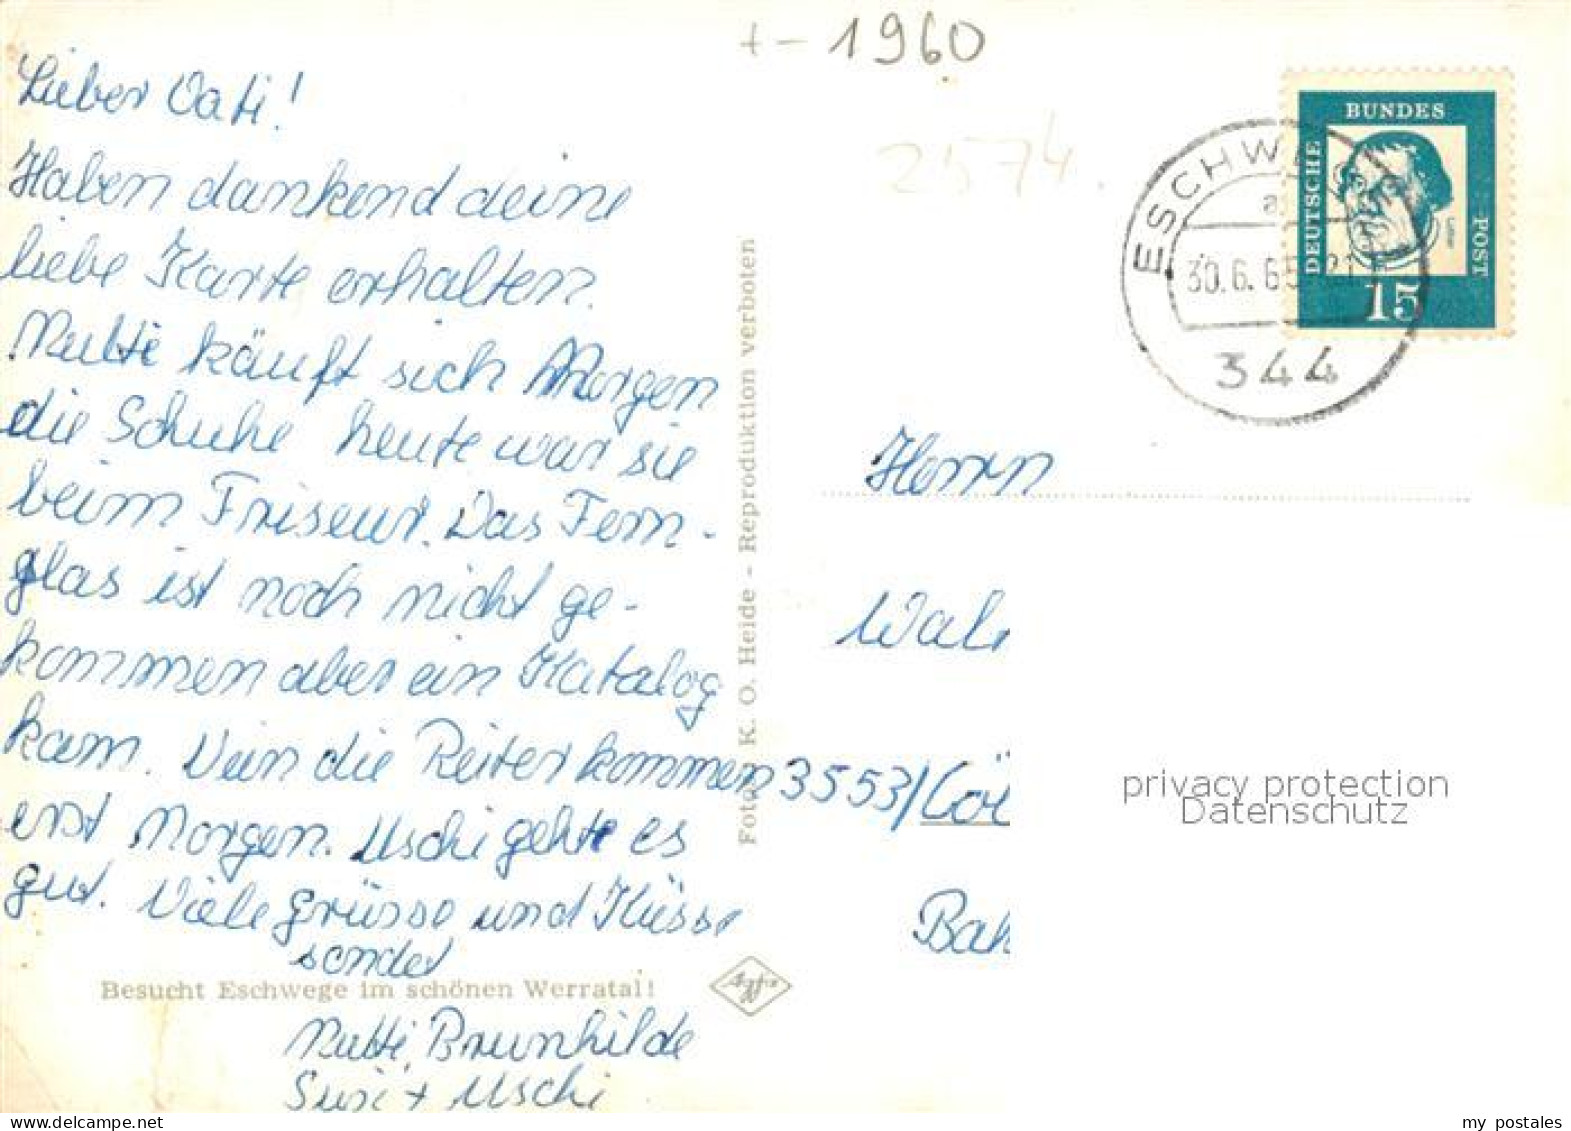 + - 1960
Lieber Vati!
Haben dankend deine
liebe Karte erhalten.
Mutti käuft sich Morgen
die Schuhe heute war sie
beim Friseur. Das Fern-
glas ist noch nicht ge-
kommen aber ein Katalog
kam. Nein die Reiter kommen
erst Morgen. Uschi gehte es
gut. Viele Grüsse und Küsse
sendet
Besucht Eschwege im schönen Werratal!
Mutti, Brunhilde
Susi + Uschi
Foto K. O. Heide - Reproduktion verboten
Agfa
2574.
DEUTSCHE
BUNDES
POST
15
ESCHWEGE
a
30.6.65
344
Herrn
Wal
3553/Cöl
Bah
privacy protection
Datenschutz
my postales